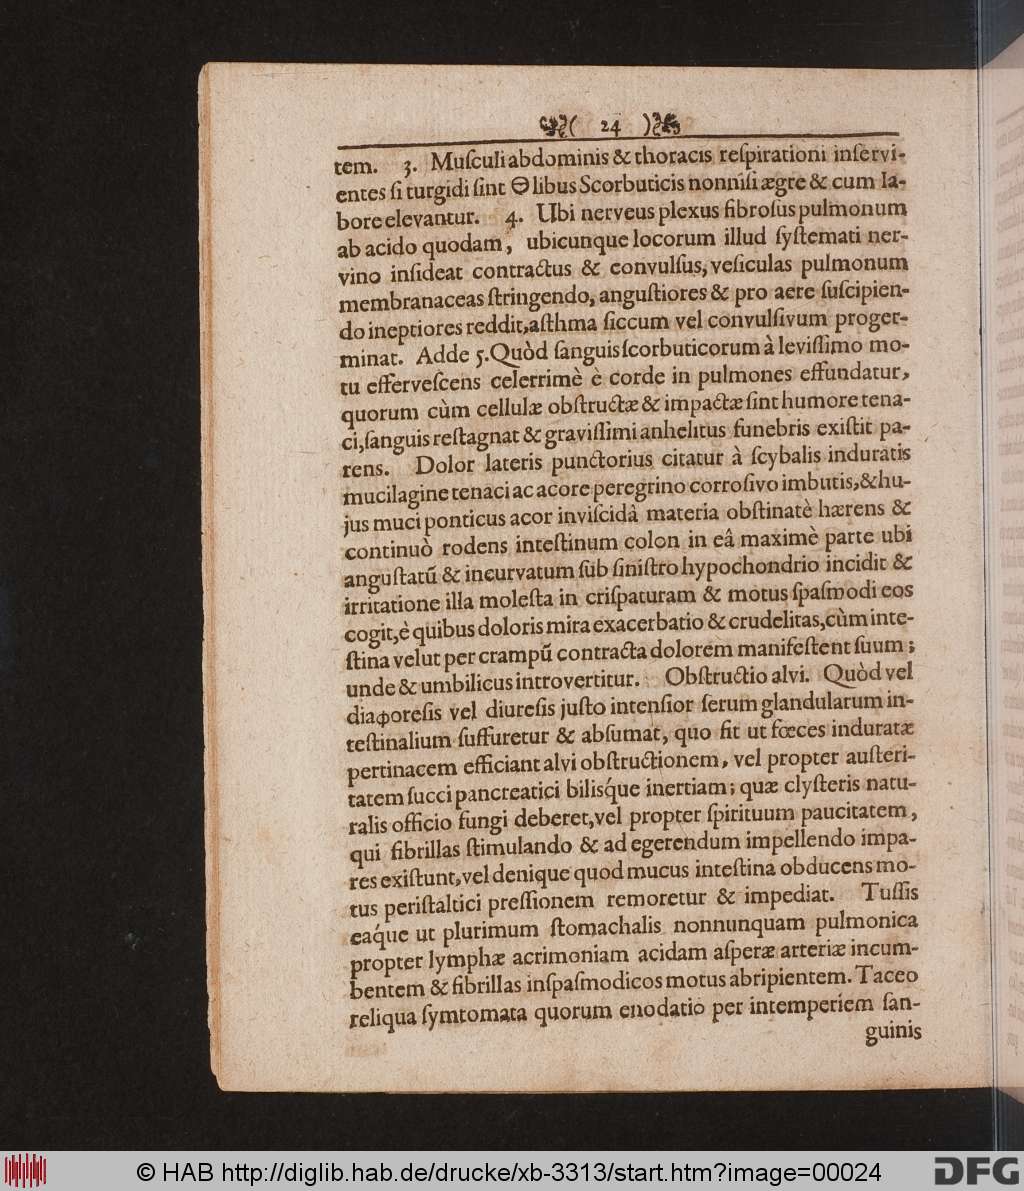 ( 24 )
tem. 3. Muſculi abdominis & thoracis reſpirationi inſervi-
entes ſi turgidi ſint Θlibus Scorbuticis nonniſi ægre & cum la-
bore elevantur. 4. Ubi nerveus plexus fibroſus pulmonum
ab acido quodam, ubicunque locorum illud ſyſtemati ner-
vino inſideat contractus & convulſus, veſiculas pulmonum
membranaceas ſtringendo, anguſtiores & pro aere ſuſcipien-
do ineptiores reddit, aſthma ſiccum vel convulſivum proger-
minat. Adde 5. Quòd ſanguis ſcorbuticorum à leviſſimo mo-
tu efferveſcens celerrimè è corde in pulmones effundatur,
quorum cùm cellulæ obſtructæ & impactæ ſint humore tena-
ci, ſanguis reſtagnat & graviſſimi anhelitus funebris exiſtit pa-
rens. Dolor lateris punctorius citatur à ſcybalis induratis
mucilagine tenaci ac acore peregrino corroſivo imbutis, & hu-
jus muci ponticus acor inviſcidâ materia obſtinatè hærens &
continuò rodens inteſtinum colon in eâ maximè parte ubi
anguſtatũ & incurvatum ſub ſiniſtro hypochondrio incidit &
irritatione illa moleſta in criſpaturam & motus ſpaſmodi eos
cogit, è quibus doloris mira exacerbatio & crudelitas, cùm inte-
ſtina velut per crampũ contracta dolorem manifeſtent ſuum;
unde & umbilicus introvertitur. Obſtructio alvi. Quòd vel
diaφoreſis vel diureſis juſto intenſior ſerum glandularum in-
teſtinalium ſuffuretur & abſumat, quo fit ut fœces induratæ
pertinacem efficiant alvi obſtructionem, vel propter auſteri-
tatem ſucci pancreatici biliſq́ue inertiam; quæ clyſteris natu-
ralis officio fungi deberet, vel propter ſpirituum paucitatem,
qui fibrillas ſtimulando & ad egerendum impellendo impa-
res exiſtunt, vel denique quod mucus inteſtina obducens mo-
tus periſtaltici preſſionem remoretur & impediat. Tuſſis
eaq́ue ut plurimum ſtomachalis nonnunquam pulmonica
propter lymphæ acrimoniam acidam aſperæ arteriæ incum-
bentem & fibrillas inſpaſmodicos motus abripientem. Taceo
reliqua ſymtomata quorum enodatio per intemperiem ſan-
guinis
© HAB http://diglib.hab.de/drucke/xb-3313/start.htm?image=00024
DFG